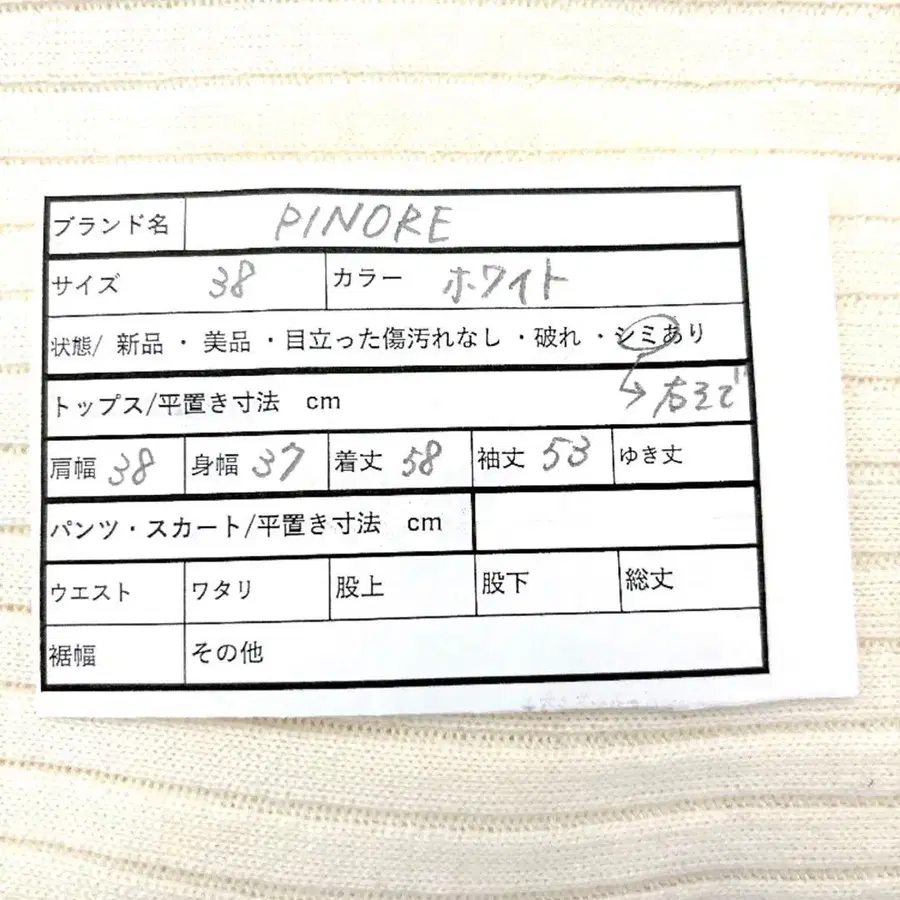 ブランド名 PINORE
サイズ 38 カラー ホワイト
状態/ 新品 ・ 美品 ・目立った傷汚れなし ・破れ ・シミあり
→右そで
トップス/平置き寸法 cm
肩幅 38 身幅 37 着丈 58 袖丈 53 ゆき丈
パンツ・スカート/平置き寸法 cm
ウエスト ワタリ 股上 股下 総丈
裾幅 その他